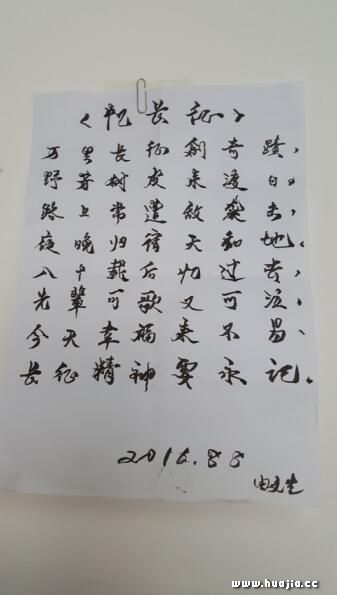 长征》
万里长征創奇蹟，
野芽树皮来渡日，
路上常遭敌袭击，
夜晚归宿天和地。
八十载后忆过去，
先辈可歌又可泣，
今天幸福来不易、
长征精神要永记。
2016.8.8
www.huajia.cc